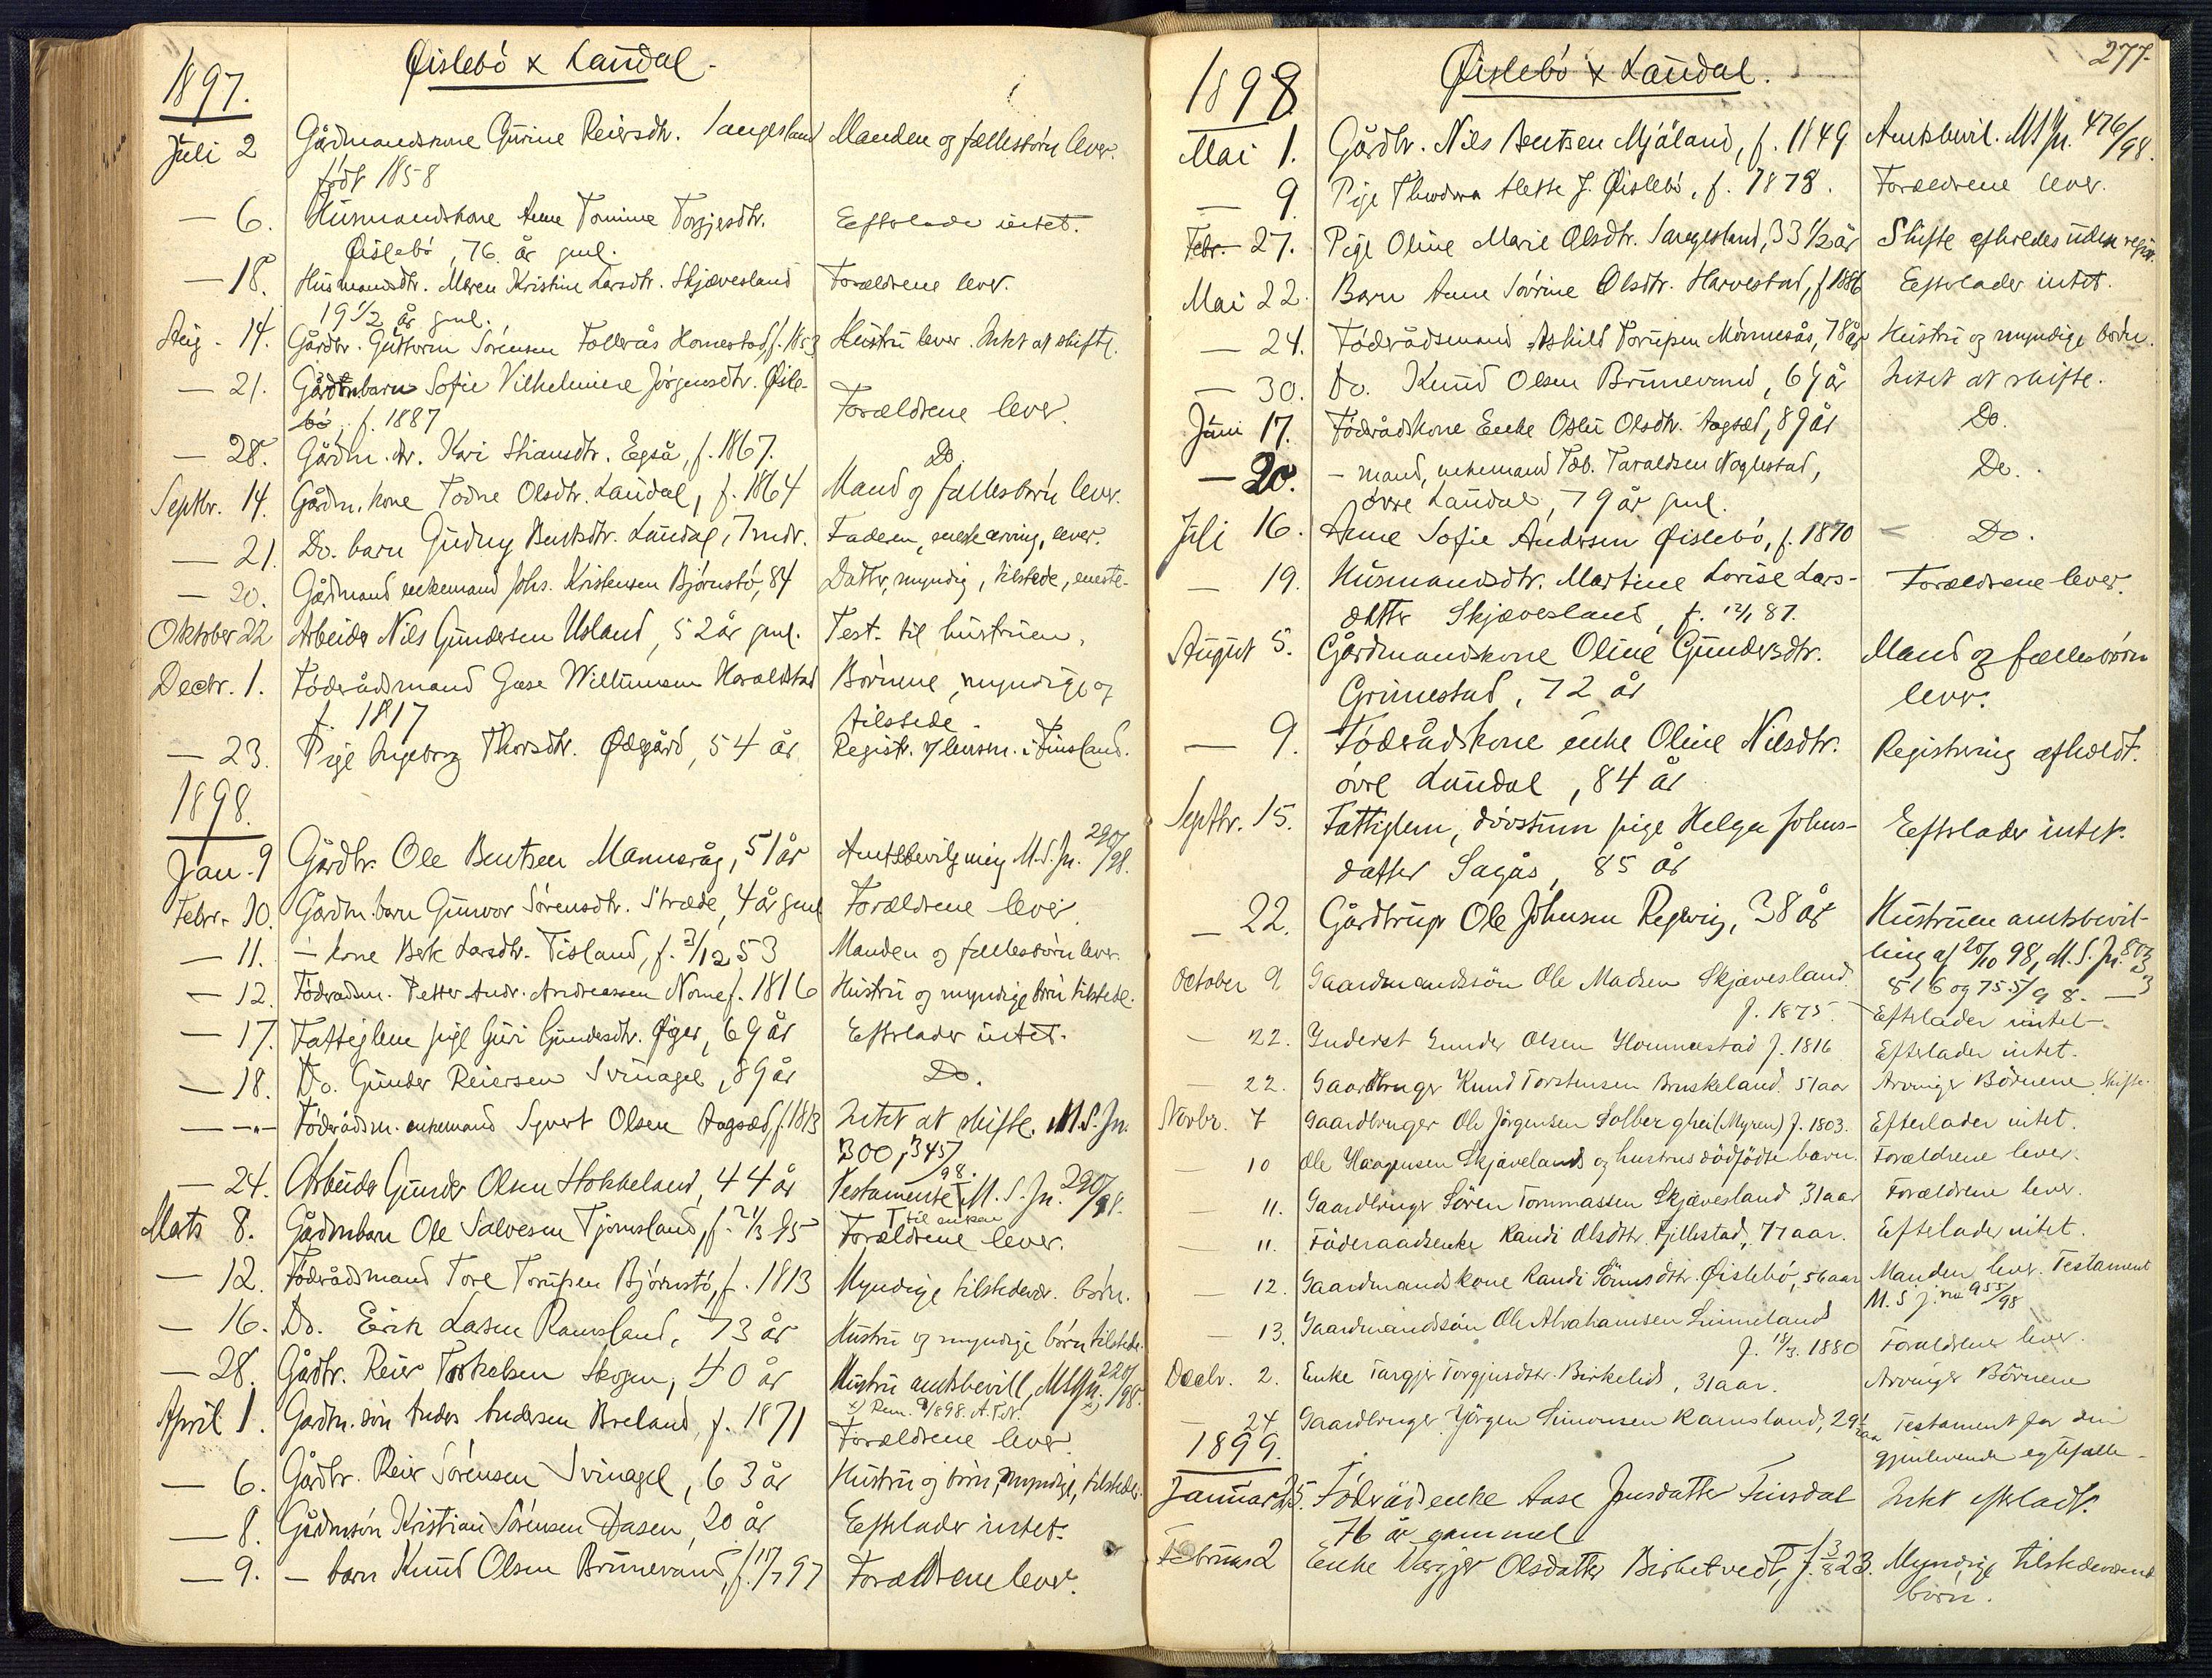 Øislebö & Laudal.
1897.
Juli 2 Gårdmandskone Gurine Reiersdtr. Manden og fællesbörn lever.
född 1858
— 6. Husmandskone Anne Tomine Torgjesdtr. Efterlader intet.
Øislebö, 76 år gml.
— 18. Husmandsdtr. Maren Kristine Larsdtr. Skjævesland Forældrene lever.
19 1/2 år gml.
Aug. 14. Gårdbr. Guttorm Sörensen Homestad, f. 1853 Hustru lever. Intet at skifte.
— 21. Gårdmbarn Sofie Vilhelmine Jörgensdtr. Øisle-
bö, f. 1887 Forældrene lever.
— 28. Gårdm. dtr. Kari Stiansdtr. Egså, f. 1867. Do.
Septbr. 14. Gårdm. kone Todne Olsdtr. Laudal, f. 1864 Mand og fællesbörn lever.
— 21. Do. barn Gudny Bentsdtr. Laudal, 7 mdr. Faderen, eneste arving, lever.
— 20. Gårdmand enkemand Johs. Kristensen Bjørnstö, 84 Datter, myndig, tilstede, eneste-
Oktober 22 Arbeider Nils Gundersen Usland, 52 år gml. Test. til hustruen.
Decbr. 1. Föderådsmand Gase Willumsen Haraldstad Börnene, myndige og
f. 1817 tilstede.
— 23. Pige Ingeborg Thorsdtr. Ødegård, 54 år Registr. lensm. i Finsland.
1898.
Jan. 9 Gårdbr. Ole Bentsen Mannsråg, 51 år Amtsbevilgning M.S.Jn. 290/98.
Febr. 10. Gårdm. barn Gunvor Sörensdtr. Stræde, 4 år gml Forældrene lever.
— 11. — kone Berte Larsdtr. Tisland, f. 3/12 53 Manden og fællesbörn lever.
— 12. Föderådsm. Petter Andr. Andreassen Nome f. 1816 Hustru og myndige börn tilstede.
— 17. Fattiglem pige Guri Gundersdtr. Øger, 69 år Efterlader intet.
— 18. Do. Gunder Reiersen Svinagel, 89 år Do.
— " — Föderådsm. enkemand Syvert Olsen Aagsæd, f. 1813 Intet at skifte. M.S.Jn.
300, 345/98.
— 24. Arbeider Gunder Olsen Stokkeland, 44 år Testamente M.S.Jn. 290/98.
til enken
Marts 8. Gårdmbarn Ole Salvesen Tjomsland, f. 21/3 95 Forældrene lever.
— 12. Föderådsmand Tore Torupsen Bjørnstö, f. 1813 Myndige tilstedevær. börn.
— 16. Do. Erik Lasen Ramsland, 73 år Hustru og myndige börn tilstede.
— 28. Gårdbr. Reier Torkelsen Skogen, 40 år Hustru amtsbevill, M.S.Jn. 220/98.
x) Rem. 9/8 98.
April 1. Gårdm. sön Anders Andersen Breland, f. 1871 Forældrene lever.
— 6. Gårdbr. Reier Sörensen Svinagel, 63 år Hustru og börn, myndige, tilstede.
— 8. Gårdmsön Kristian Sörensen Aasen, 20 år Efterlader intet.
— 9. — barn Knud Olsen Brunevand, f. 17/7 97 Forældrene lever.
277.
Øislebö & Laudal.
1898
Mai 1. Gårdbr. Nils Bentsen Mjåland, f. 1849 Amtsbevil. MSJn. 476/98.
— 9. Pige Theodora Alette J. Øislebö, f. 1878. Forældrene lever.
Febr. 27. Pige Oline Marie Olsdtr. 33 1/2 år Skifte afholdes uden registr.
Mai 22. Barn Anne Sövrine Olsdtr. Harvestad, f. 1886 Efterlader intet.
— 24. Föderådsmand Askild Torupsen Monnesås, 78 år Hustru og myndige börn.
— 30. Do. Knud Olsen Brunevand, 69 år Intet at skifte.
Juni 17. Föderådskone Enke Oslu Olsdtr. Aagsæd, 89 år Do.
— 20. — mand, enkemand Tob. Taraldsen Noglestad, Do.
övre Laudal, 79 år gml.
Juli 16. Anne Sofie Andersen Øislebö, f. 1870 Do.
— 19. Husmandsdtr. Martine Lovise Lars- Forældrene lever.
datter Skjævesland, f. 12/1 87.
August 5. Gårdmandskone Oline Gundersdtr. Mand og fællesbörn
Grimestad, 72 år lever.
— 9. Föderådskone enke Oline Nilsdtr. Registrering afholdt.
övre Laudal, 84 år
Septbr. 15. Fattiglem, dövstum pige Helga Johns- Efterlader intet.
datter Sagås, 85 år
— 22. Gårdbruger Ole Johnsen Regevig, 38 år Hustruen amtsbevil-
ling af 20/10 98, M.S.Jn. 803
816 og 755/98.
October 9. Gaardmandssön Ole Madsen Skjævesland
f. 1875. Efterlader intet.
— 22. Inderst Gunder Olsen Hommestad f. 1816 Efterlader intet.
— 22. Gaardbruger Knud Torstensen Bruskeland. 51 aar Arvinger Börnene Skifte.
Novbr. 7 Gaardbruger Ole Jörgensen Solberghei (Myren) f. 1803. Efterlader intet.
— 10 Ole Haagensen Skjævelands og hustrus dödfödte barn. Forældrene lever.
— 11. Gaardbruger Sören Tommassen Skjævesland 31 aar Forældrene lever.
— 11. Föderaadsenke Randi Olsdtr. Fjellestad, 77 aar. Efterlader intet.
— 12. Gaardmandskone Randi Sörensdtr. Øislebö, 56 aar Manden lever. Testament
M.S.j. no 955/98
— 13. Gaardmandssön Ole Abrahamsen Linneland
f. 18/3. 1880 Forældrene lever.
Decbr. 2. Enke Targjer Torgjusdtr. Birkelid, 31 aar. Arvinger Börnene
— 24 Gaardbruger Jörgen Simonsen Ramsland, 29 1/2 aar Testament for den
gjenlevende egtefælle.
1899.
Januar 25. Föderådsenke Aase Jensdatter Finsdal Intet efterladt.
76 år gammel
Februar 2 Enke Vergjer Olsdatter Birketvedt, f. 3/8 23. Myndige tilstedeværende
börn.